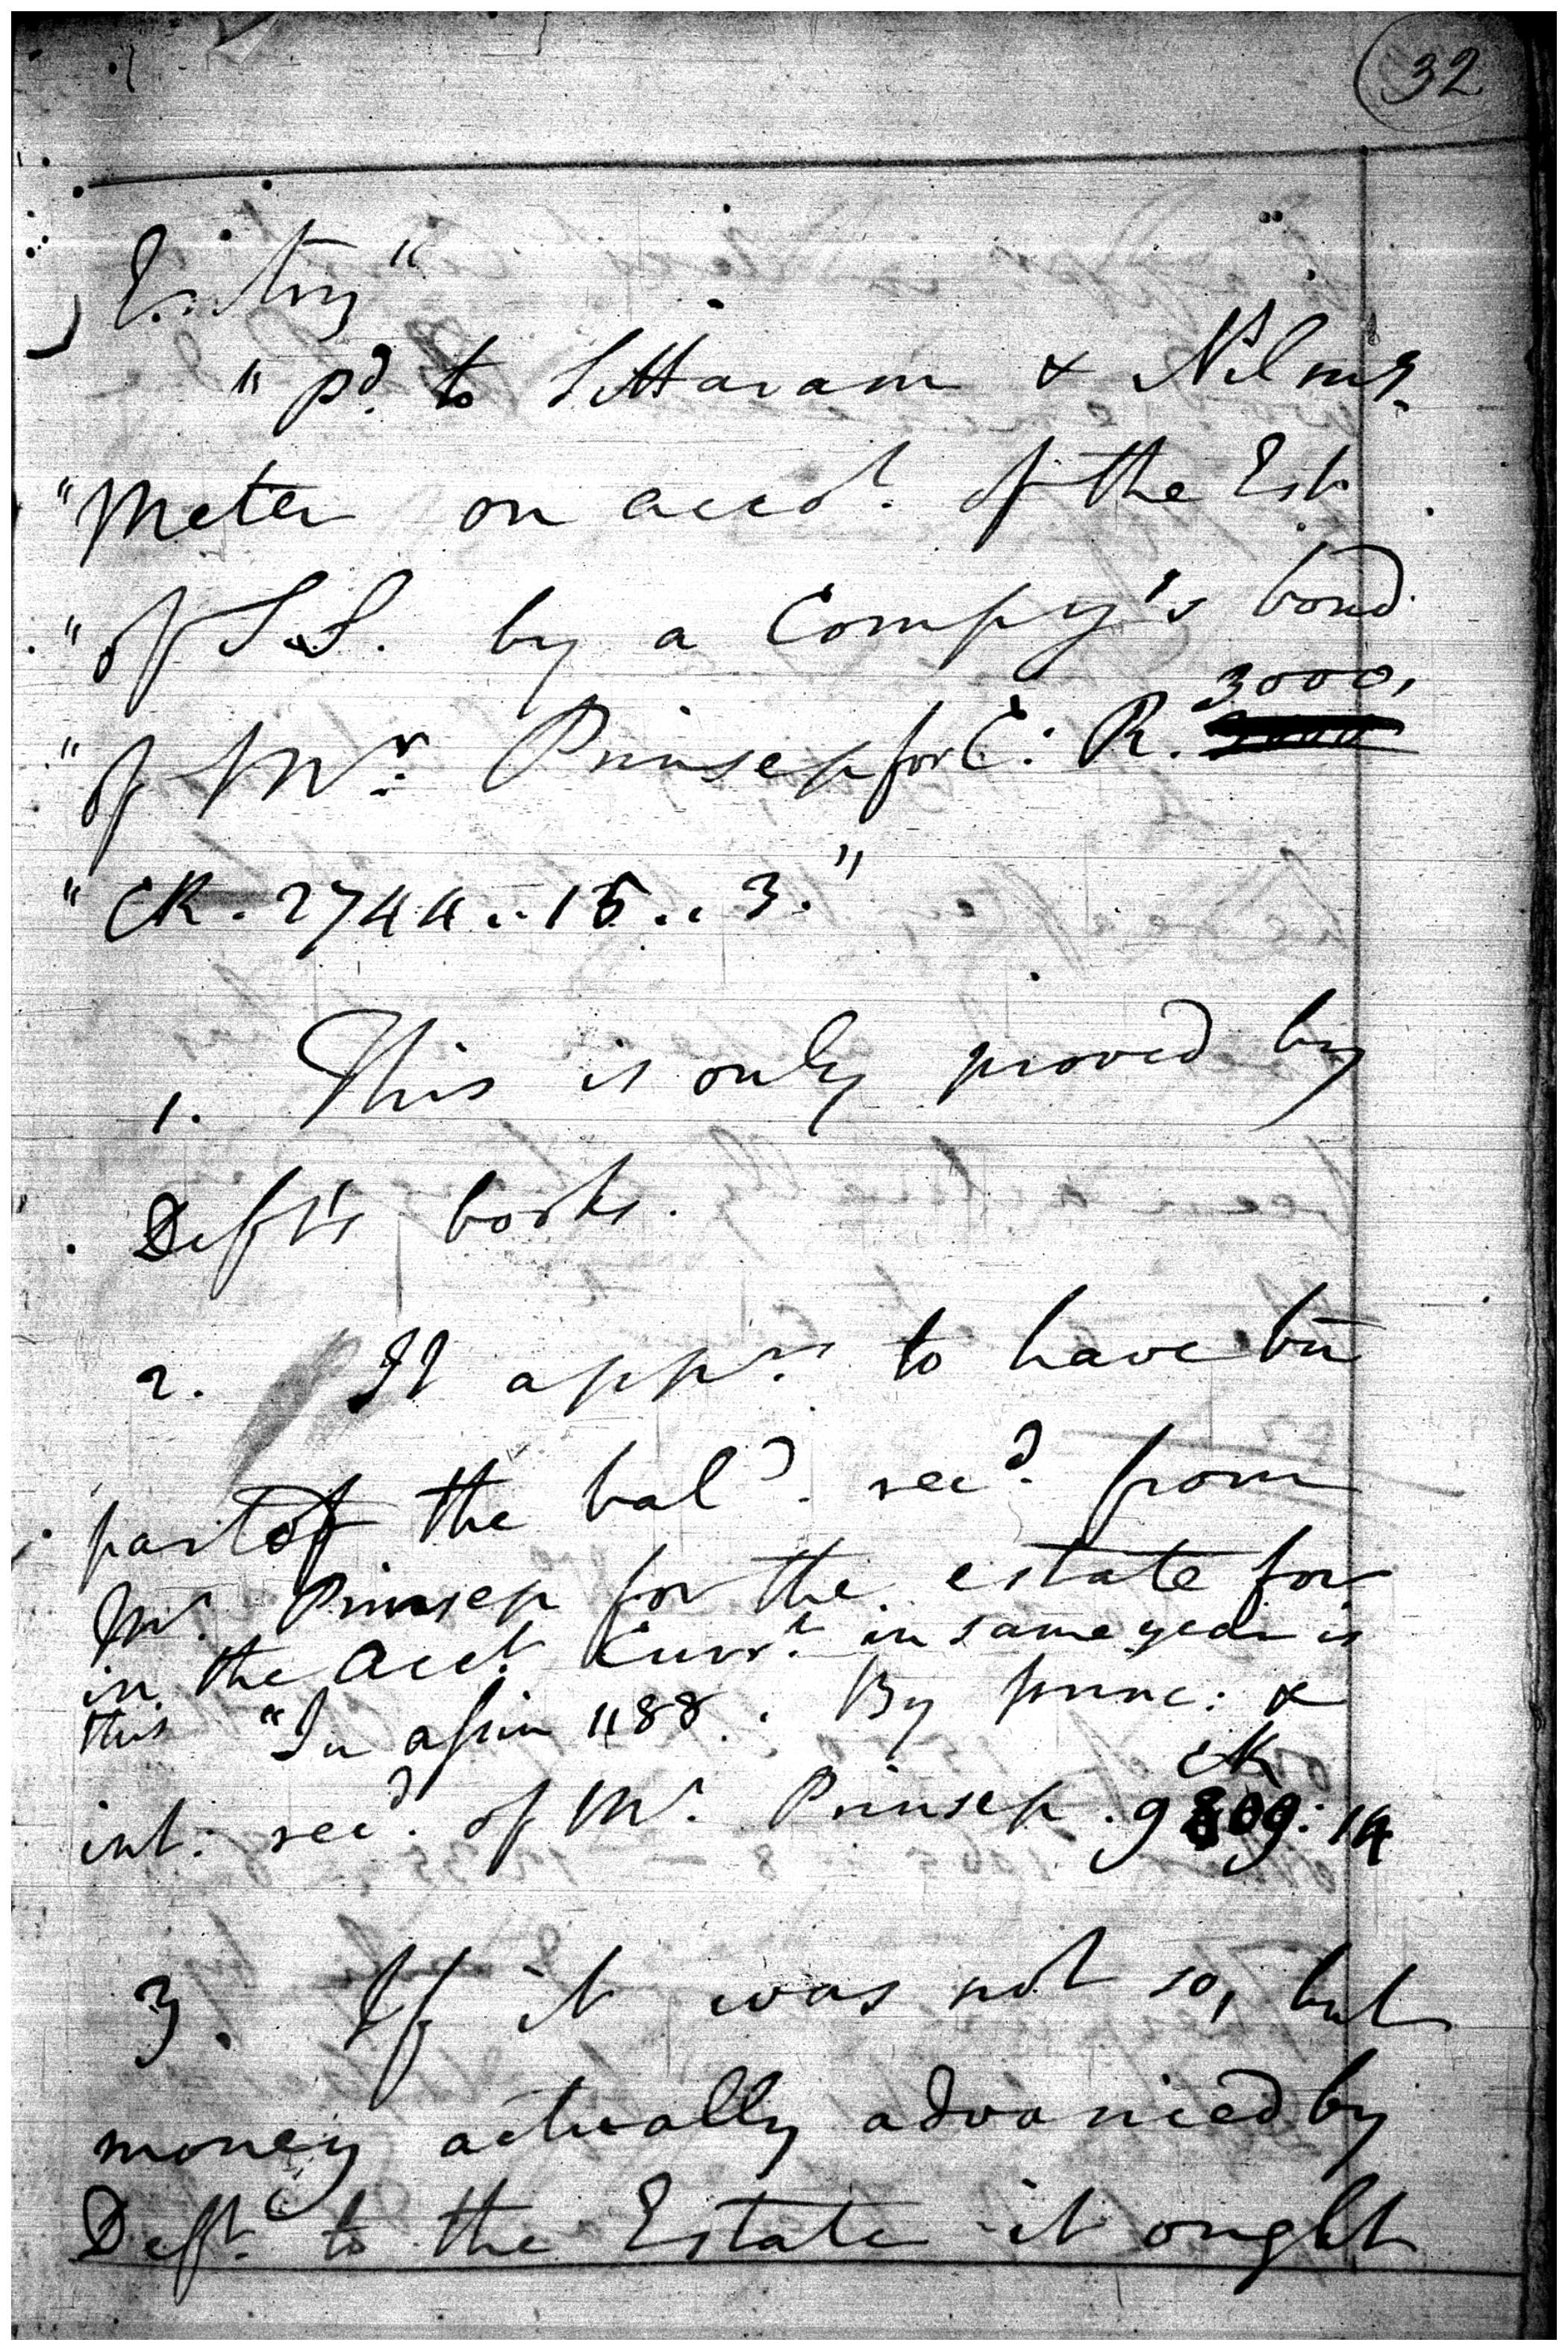 32
Entry"
" pd. to Sittaram & Nilmy.
"Meter on accot. of the Est.
" of S.S. by a Compy's bond
3000,
" of Mr. Prinsep for C: R.
" CR. 2744..15..3."
1. This is only proved by
Deft's books.
2. It apprs. to have bn
part of the bal. recd. from
Mr. Prinsep for the estate for
in the Acct. Currt. in same year is
this "In assin 1188. By princ: &
CR
int: recd. of Mr. Prinsep. 9809: 14
3. If it was not so, but
money actually advanced by
Deft. to the Estate it ought